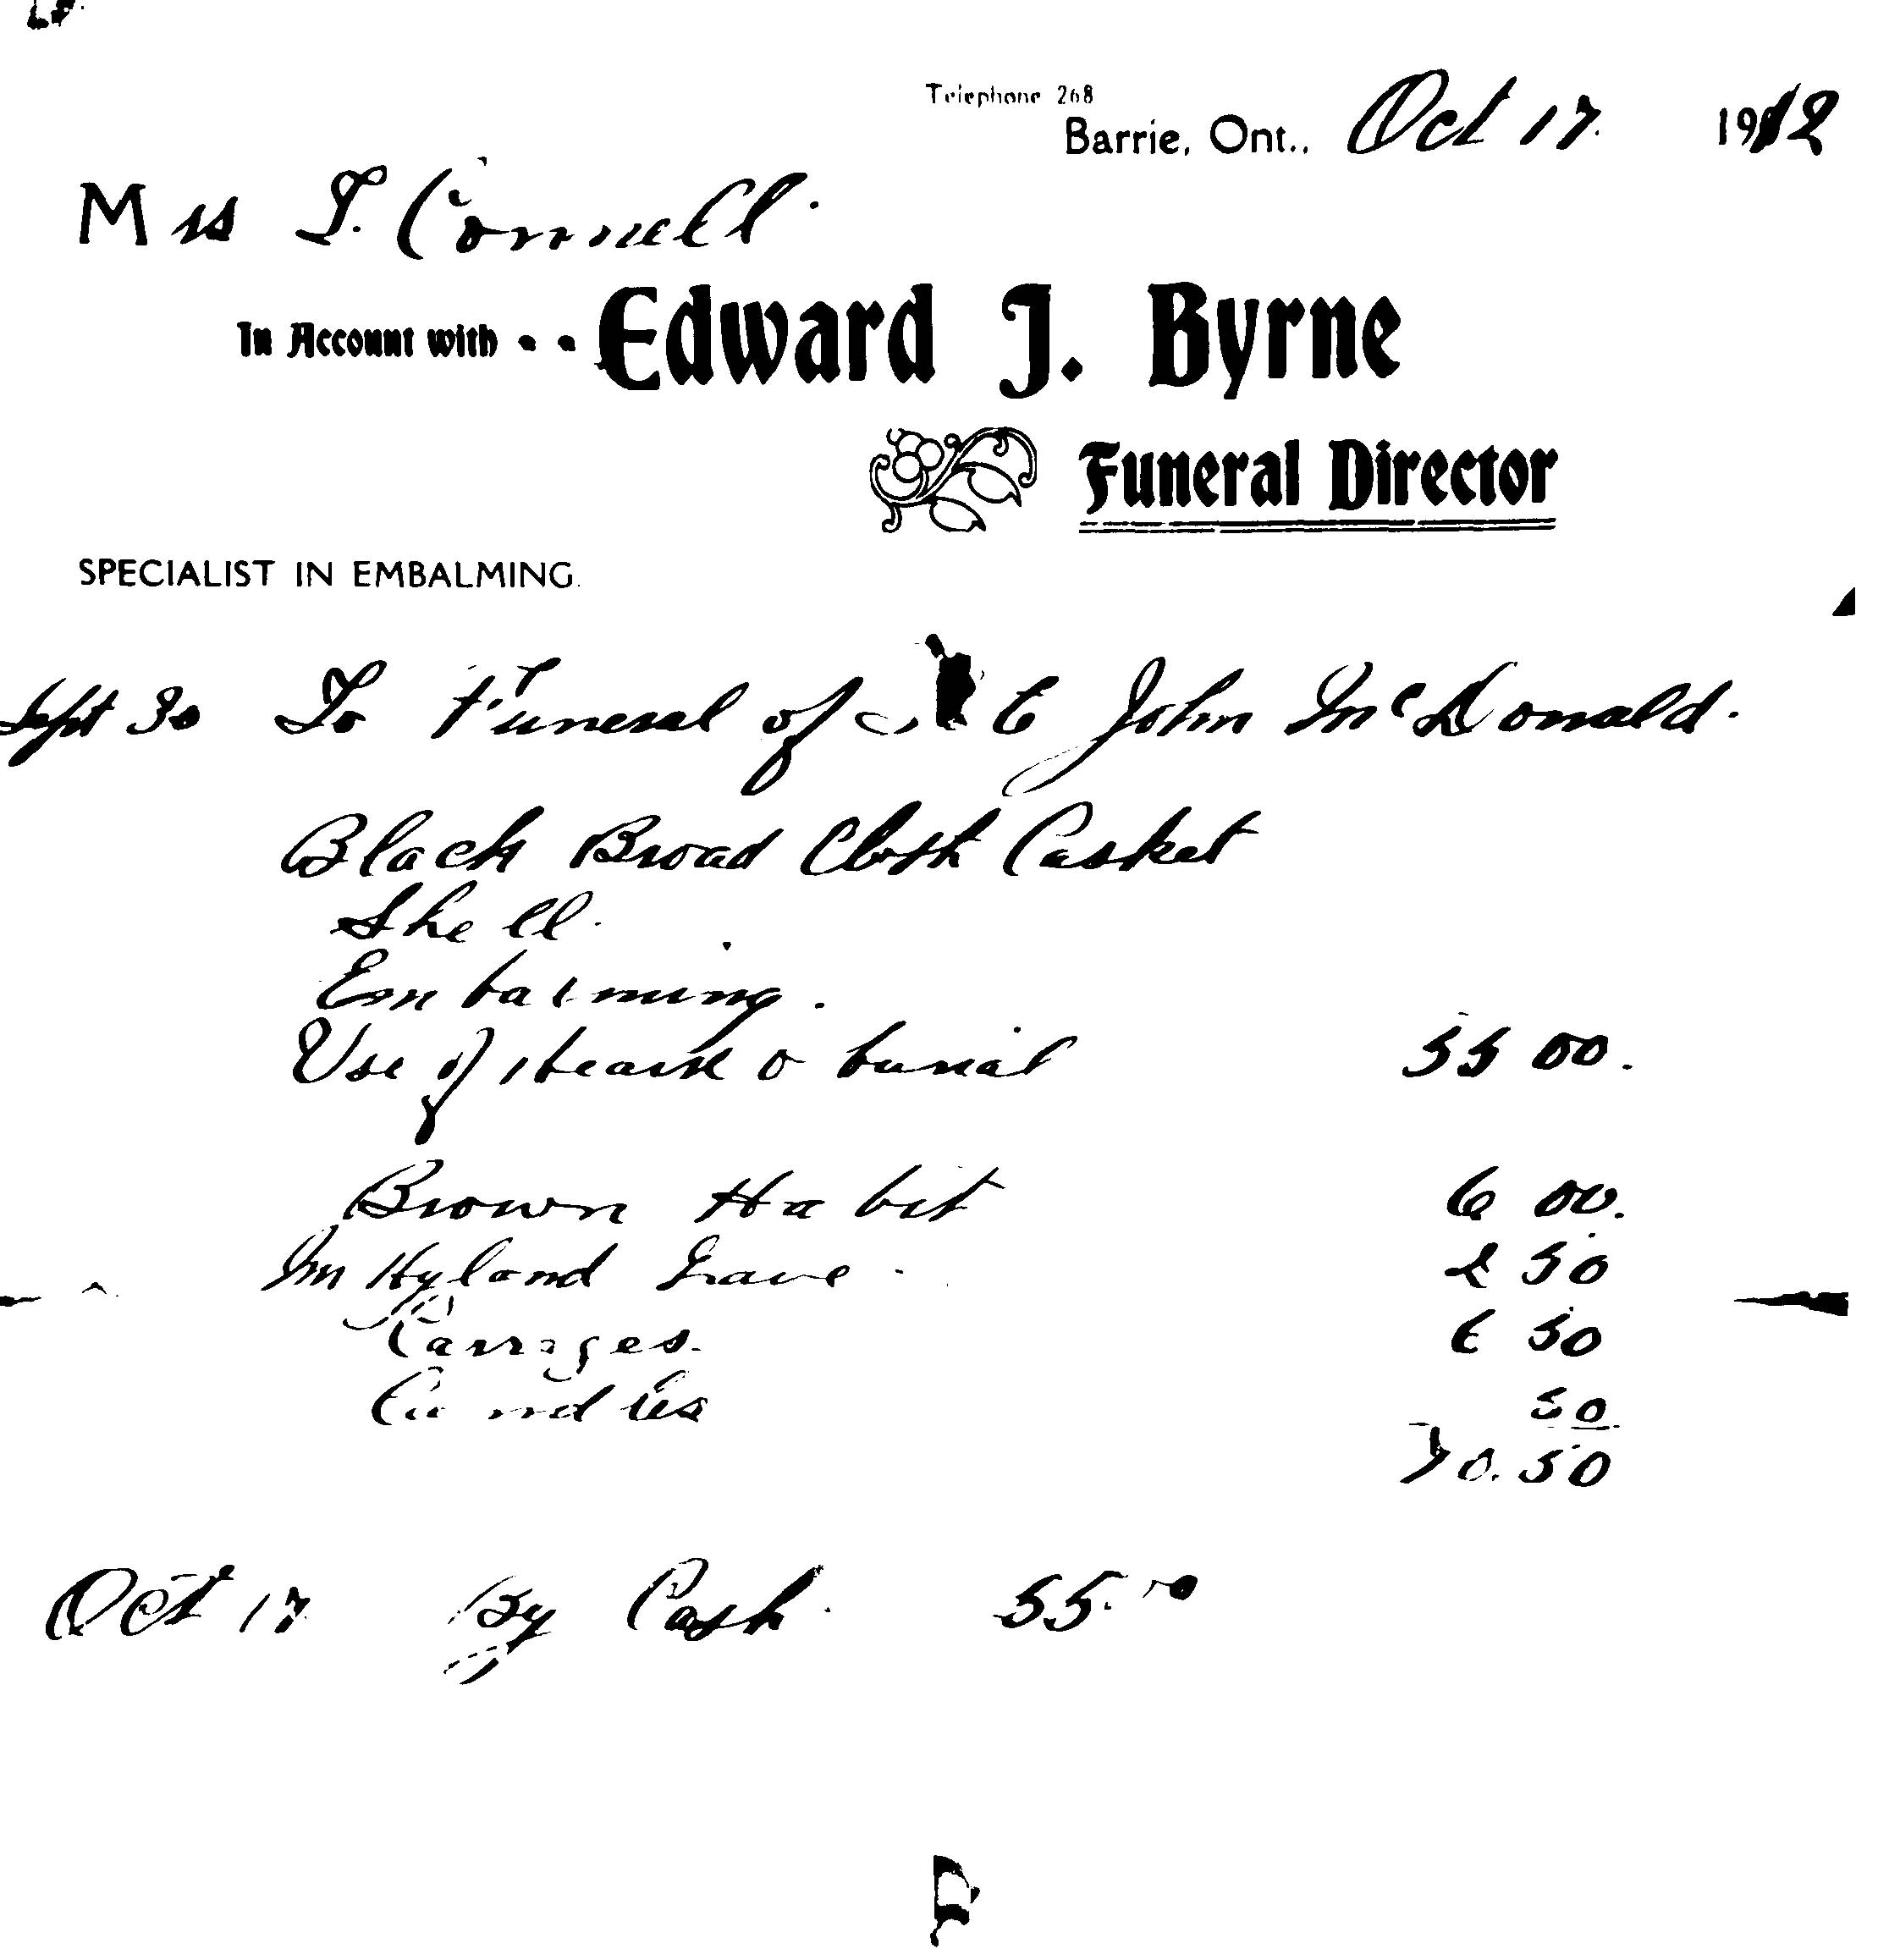 Telephone 268
Barrie, Ont., Oct 17. 1912
Mrs T. Connell.
In Account with . . Edward J. Byrne
Funeral Director
SPECIALIST IN EMBALMING.
Sept 30 To Funeral of John McDonald.
Black Broad Cloth Casket
Shell.
Embalming.
Use of Hearse & burial 55 00.
Brown Habit 6 00.
Hyland Grave. 2 50
Carriages. 6 50
Candles 50
70.50
Oct 17 By Cash. 55.00